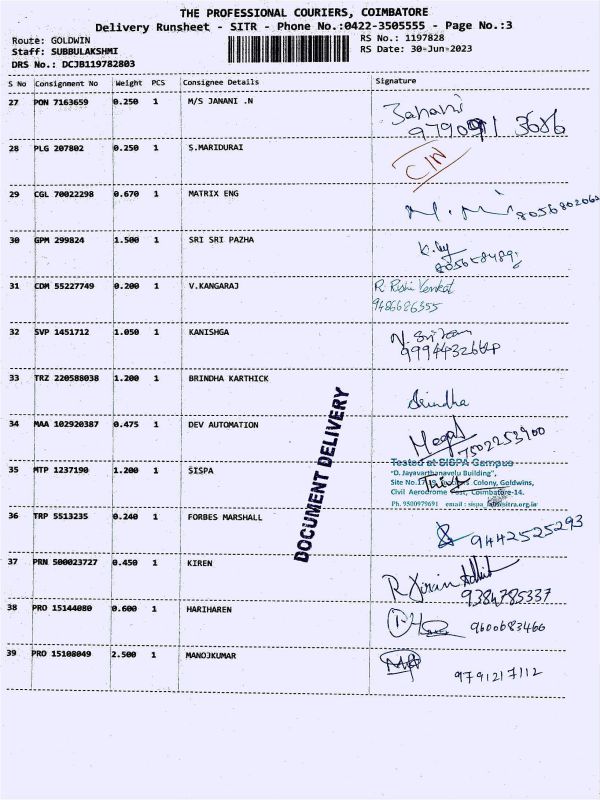 THE PROFESSIONAL COURIERS, COIMBATORE
Delivery Runsheet - SITR - Phone No.:0422-3505555 - Page No.:3
Route: GOLDWIN
RS No.: 1197828
Staff: SUBBULAKSHMI
RS Date: 30-Jun-2023
DRS No.: DCJB119782803
S No Consignment No Weight PCS Consignee Details Signature
27 PON 7163659 0.250 1 M/S JANANI .N Janani
9790911 3686
28 PLG 207802 0.250 1 S.MARIDURAI
29 CGL 70022298 0.670 1 MATRIX ENG
30 GPM 299824 1.500 1 SRI SRI PAZHA
31 CDM 55227749 0.200 1 V.KANGARAJ R. Rishi Venkat
9486686355
32 SVP 1451712 1.050 1 KANISHGA
33 TRZ 220588038 1.200 1 BRINDHA KARTHICK Brindha
34 MAA 102920387 0.475 1 DEV AUTOMATION
7502253900
35 MTP 1237190 1.200 1 SISPA
Tested at SISPA Campus
"D. Jayavarthanavelu Building",
Colony, Goldwins,
Civil Aerodrome Post, Coimbatore-14.
Ph. 9500979691
36 TRP 5513235 0.240 1 FORBES MARSHALL 9442525293
37 PRN 500023727 0.450 1 KIREN
9384785337
38 PRO 15144080 0.600 1 HARIHAREN 9600683466
39 PRO 15108049 2.500 1 MANOJKUMAR
9791217112
DOCUMENT DELIVERY